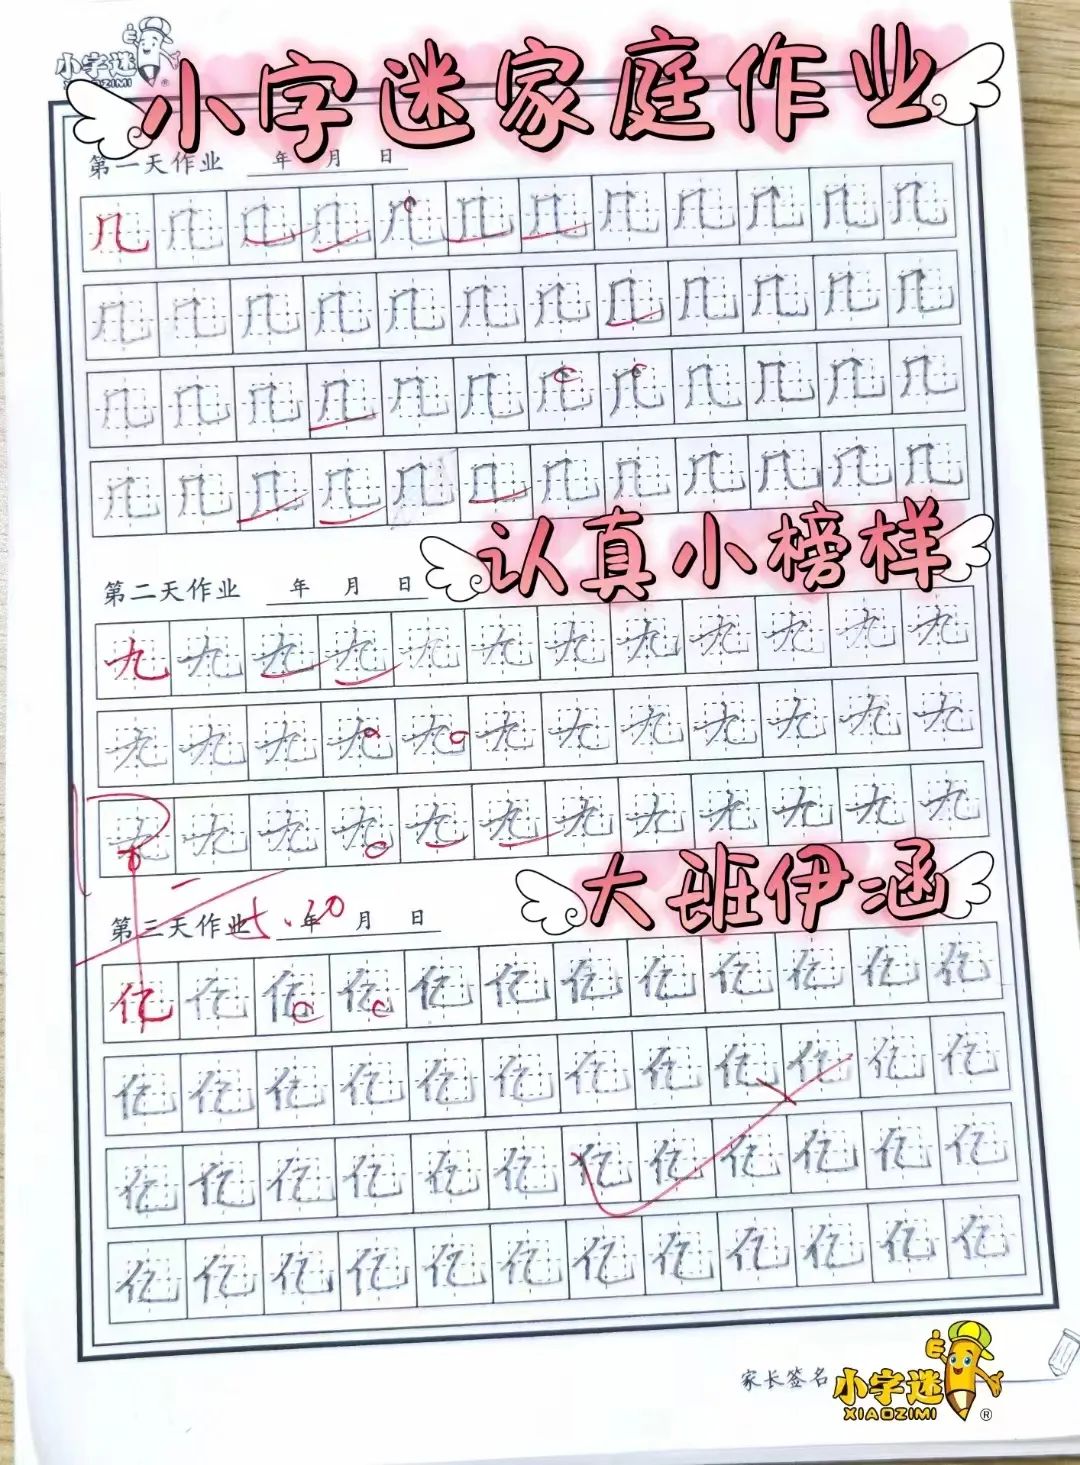 小字迷
XIAOZIMI
小字迷家庭作业
第一天作业 年 月 日
几 几 几 几 几 几 几 几 几 几 几 几
几 几 几 几 几 几 几 几 几 几 几 几
几 几 几 几 几 几 几 几 几 几 几 几
几 几 几 几 几 几 几 几 几 几 几 几
认真小榜样
第二天作业 年 月 日
九 九 九 九 九 九 九 九 九 九 九 九
九 九 九 九 九 九 九 九 九 九 九 九
九 九 九 九 九 九 九 九 九 九 九 九
大班伊涵
第三天作业 年 月 日
亿 亿 亿 亿 亿 亿 亿 亿 亿 亿 亿 亿
亿 亿 亿 亿 亿 亿 亿 亿 亿 亿 亿 亿
亿 亿 亿 亿 亿 亿 亿 亿 亿 亿 亿 亿
亿 亿 亿 亿 亿 亿 亿 亿 亿 亿 亿 亿
家长签名
小字迷
XIAOZIMI®